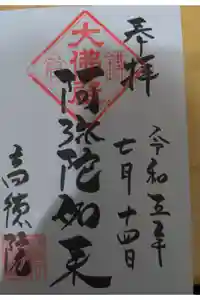 奉拝
令和五年
七月十四日
大佛殿
阿弥陀如来
高徳院